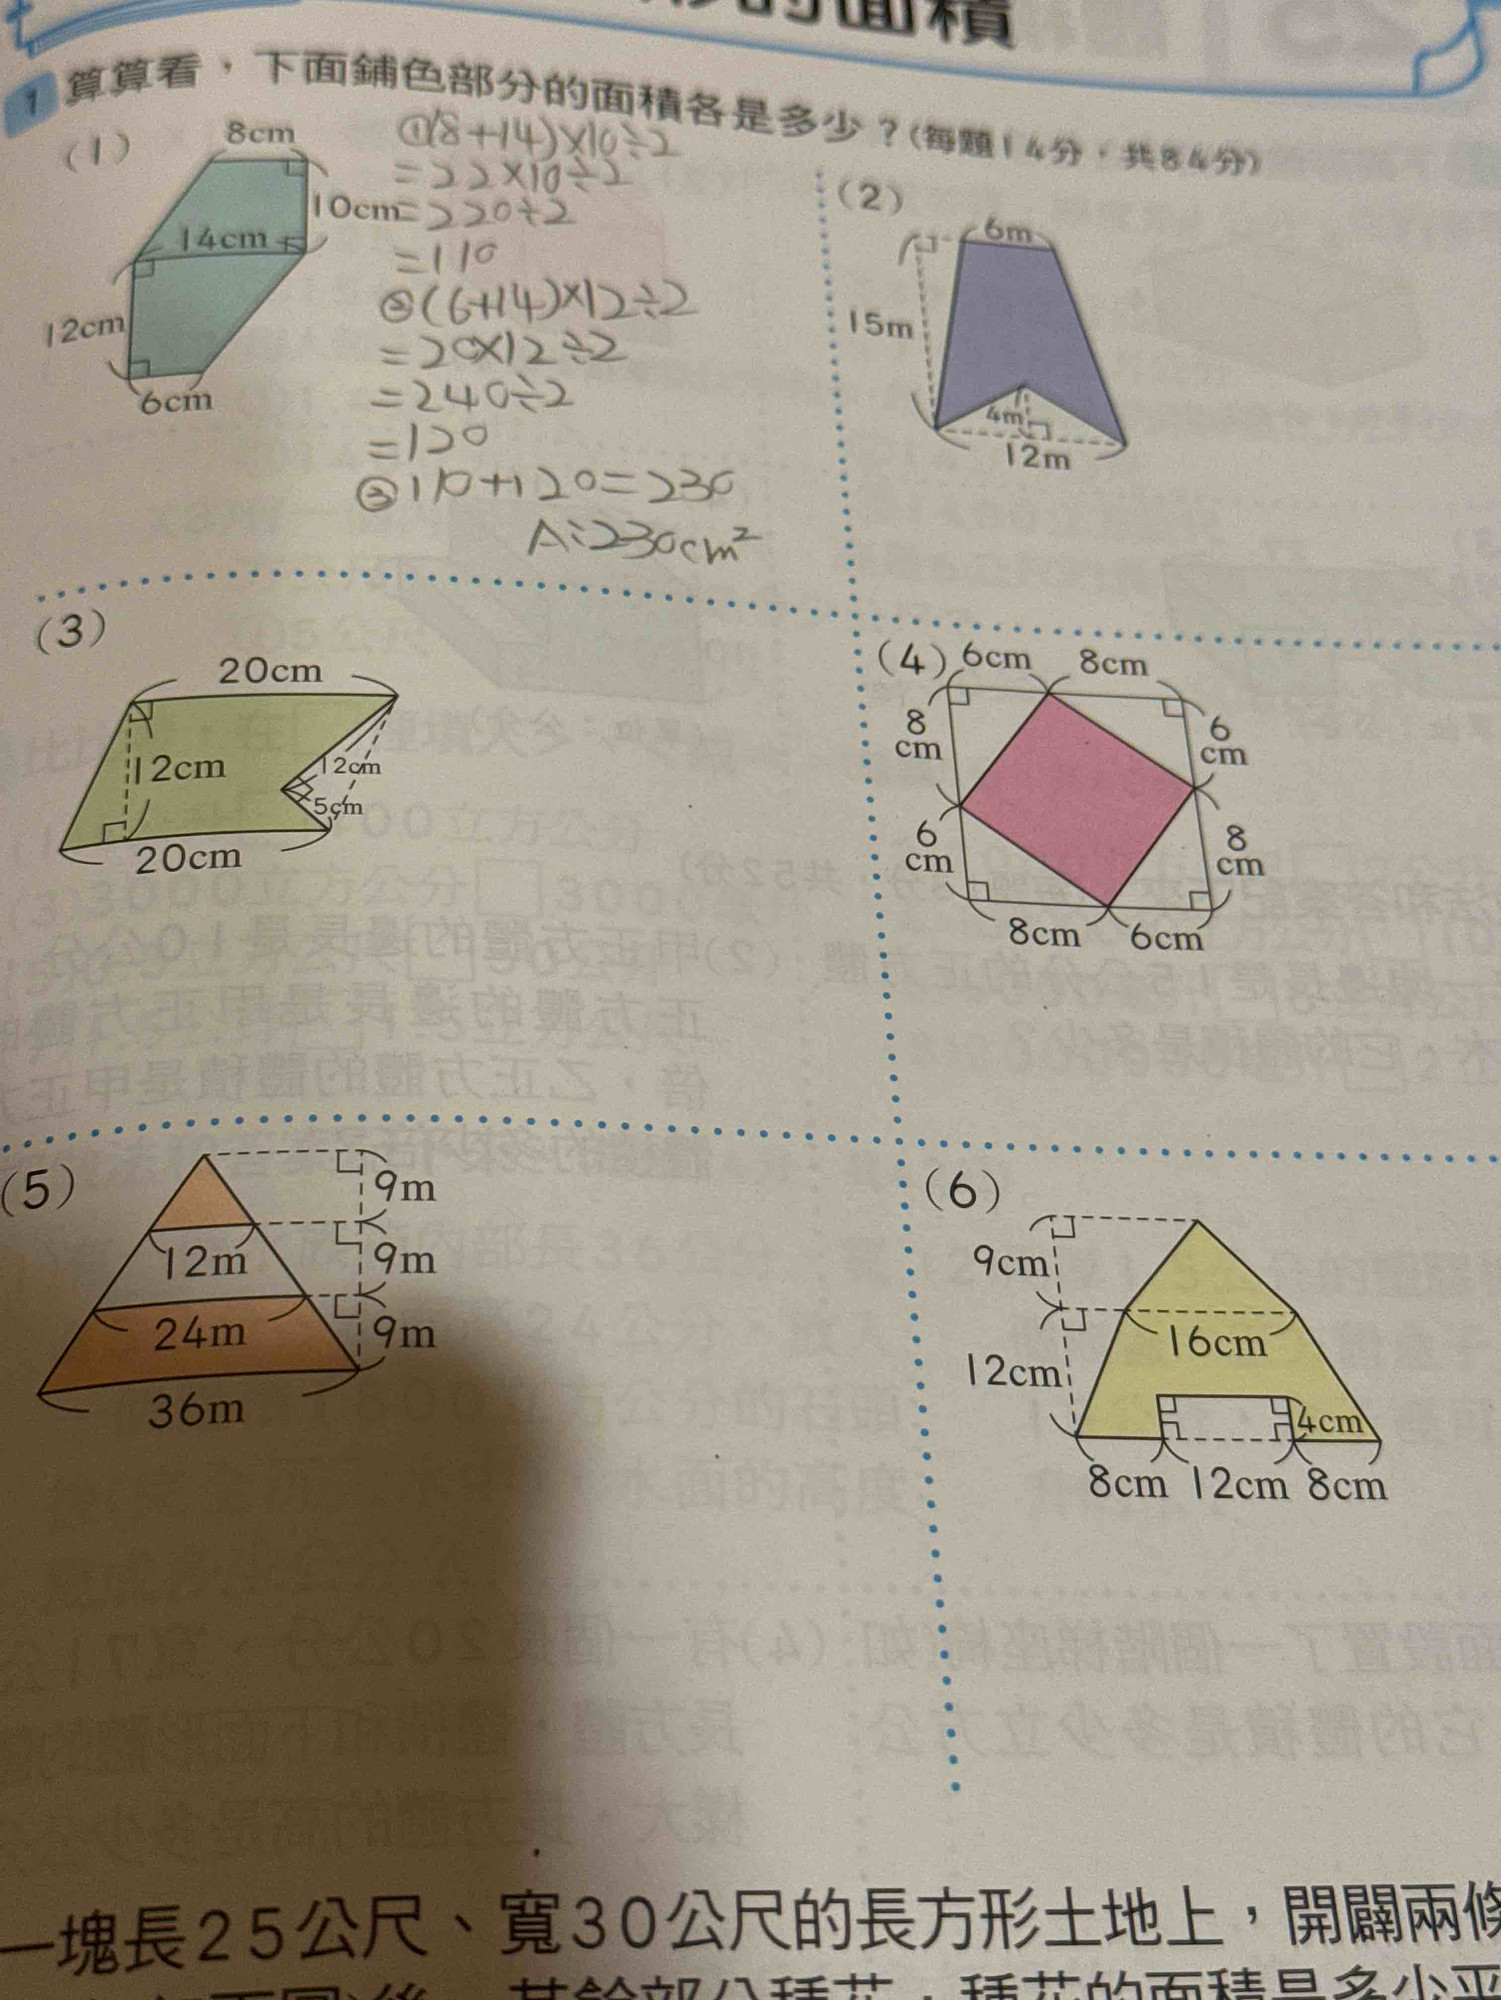 的面積
1 算算看，下面鋪色部分的面積各是多少？（每題14分，共84分）
(1)
8cm
10cm
14cm
12cm
6cm
①(8+14)×10÷2
=22×10÷2
=220÷2
=110
②(6+14)×12÷2
=20×12÷2
=240÷2
=120
③110+120=230
A:230cm²
(2)
6m
15m
4m
12m
(3)
20cm
12cm
12cm
5cm
20cm
(4)
6cm 8cm
8
cm
6
cm
6
cm
8
cm
8cm 6cm
(5)
9m
12m
9m
24m
9m
36m
(6)
9cm
16cm
12cm
4cm
8cm 12cm 8cm
一塊長25公尺、寬30公尺的長方形土地上，開闢兩條
後，其餘部分種花，種花的面積是多少平